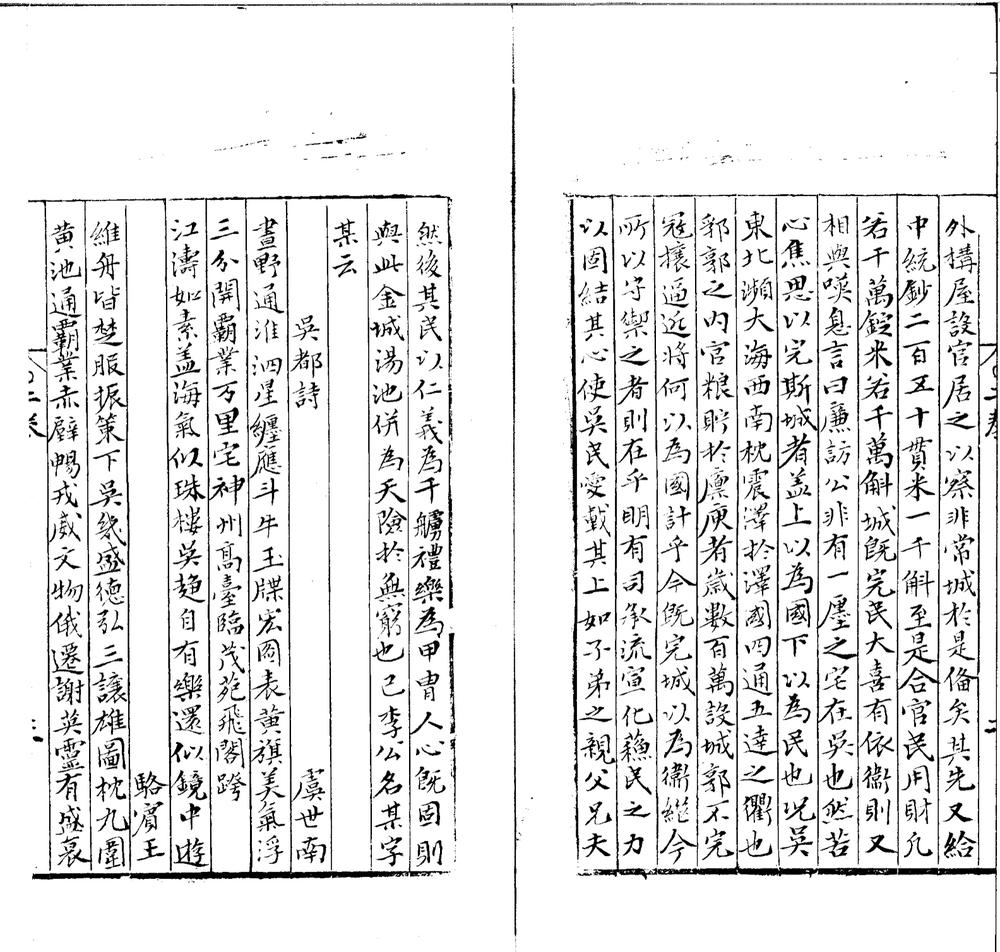 外搆屋設官居之以察非常城於是俻矣其先又給
中統鈔二百五十貫米一千斛至是合官民用財凡
若干萬錠米若千萬斛城旣完民大喜有依衞則又
相與嘆息言曰廉訪公非有一廛之宅在吳也然若
心焦思以完斯城者盖上以為國下以為民也况吳
東北瀕大海西南枕震澤於澤國四通五達之衢也
郛郭之内官粮貯於廪庾者歲數百萬設城郭不完
冦攘逼近將何以為國計乎今既完城以為衞繼今
所以守禦之者則在乎明有司承流宣化蘓民之力
以固結其心使吳民愛戴其上如子弟之親父兄夫
然後其民以仁義為干艣禮樂為甲胄人心既固則
與此金城湯池併為天險於無窮也已李公名某字
某云
吳都詩
虞世南
畫野通淮泗星纏應斗牛玉牒宏圖表黄旗美氣浮
三分開霸業万里宅神州髙臺臨茂苑飛閣跨
江濤如素盖海氣似珠樓吳趨自有樂還似鏡中遊
駱賓王
維舟皆楚服振策下吳畿盛德弘三讓雄圖枕九圍
黄池通霸業赤壁暢戎威文物俄遷謝英靈有盛衰